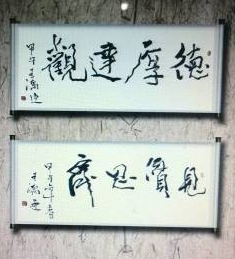 德厚達觀
甲午
見賢思齊
甲午年春